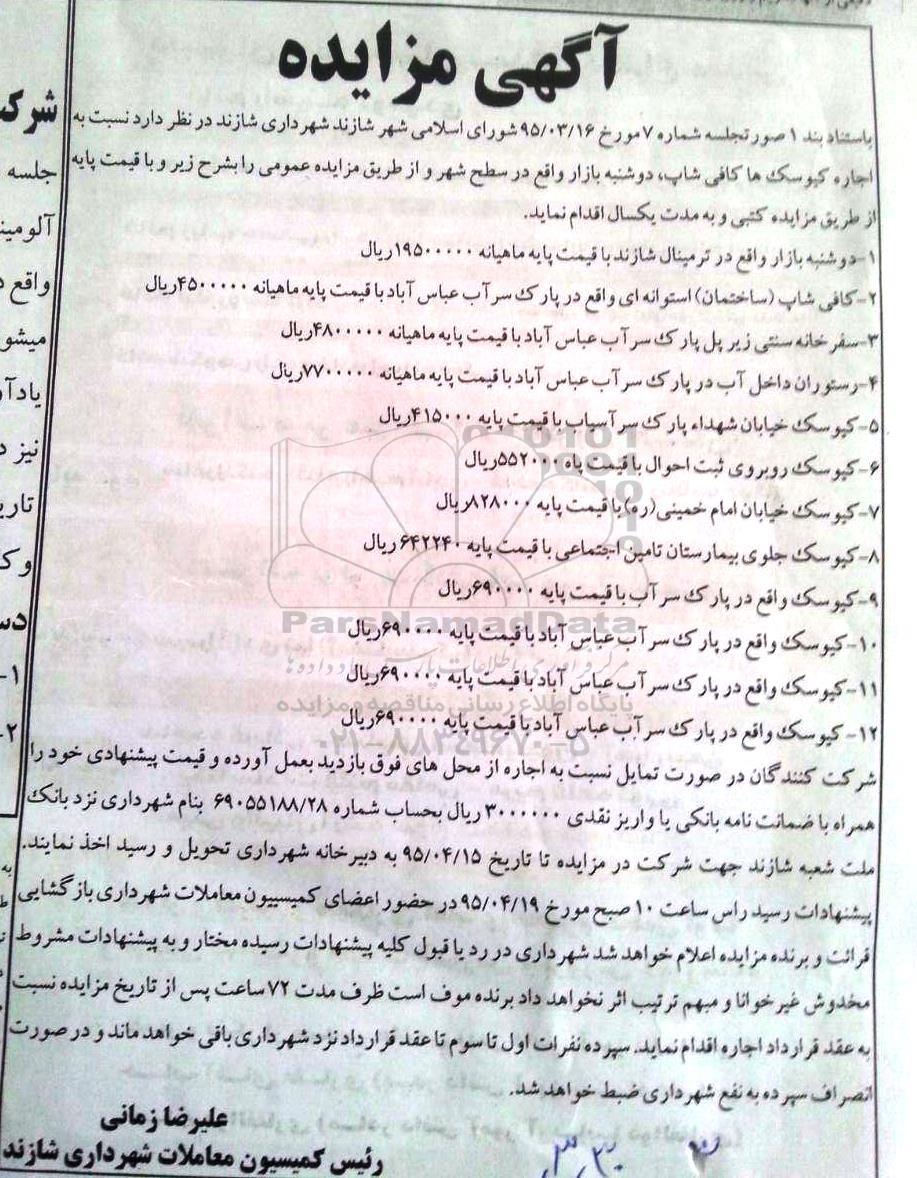 آگهی مزایده
باستناد بند ۱ صورتجلسه شماره ۷ مورخ ۹۵/۰۳/۱۶ شورای اسلامی شهر شازند شهرداری شازند در نظر دارد نسبت به
اجاره کیوسک ها کافی شاپ، دوشنبه بازار واقع در سطح شهر و از طریق مزایده عمومی را بشرح زیر و با قیمت پایه
از طریق مزایده کتبی و به مدت یکسال اقدام نماید.
۱-دوشنبه بازار واقع در ترمینال شازند با قیمت پایه ماهیانه ۱۹۵۰۰۰۰۰ریال
۲-کافی شاپ (ساختمان) استوانه ای واقع در پارک سرآب عباس آباد با قیمت پایه ماهیانه ۴۵۰۰۰۰۰ریال
۳-سفرخانه سنتی زیر پل پارک سرآب عباس آباد با قیمت پایه ماهیانه ۴۸۰۰۰۰۰ریال
۴-رستوران داخل آب در پارک سرآب عباس آباد با قیمت پایه ماهیانه ۷۷۰۰۰۰۰ریال
۵-کیوسک خیابان شهداء پارک سرآسیاب با قیمت پایه ۴۱۵۰۰۰ریال
۶-کیوسک روبروی ثبت احوال با قیمت پاه ۵۵۲۰۰۰ریال
۷-کیوسک خیابان امام خمینی(ره)با قیمت پایه ۸۲۸۰۰۰ریال
۸-کیوسک جلوی بیمارستان تامین اجتماعی با قیمت پایه ۶۴۲۲۴۰ ریال
۹-کیوسک واقع در پارک سرآب با قیمت پایه ۶۹۰۰۰۰ریال
۱۰-کیوسک واقع در پارک سرآب عباس آباد با قیمت پایه ۶۹۰۰۰۰ریال
۱۱-کیوسک واقع در پارک سرآب عباس آباد با قیمت پایه ۶۹۰۰۰۰ریال
۱۲-کیوسک واقع در پارک سرآب عباس آباد با قیمت پایه ۶۹۰۰۰۰ریال
شرکت کنندگان در صورت تمایل نسبت به اجاره از محل های فوق بازدید بعمل آورده و قیمت پیشنهادی خود را
همراه با ضمانت نامه بانکی یا واریز نقدی ۳۰۰۰۰۰۰ ریال بحساب شماره ۶۹۰۵۵۱۸۸/۲۸ بنام شهرداری نزد بانک
ملت شعبه شازند جهت شرکت در مزایده تا تاریخ ۹۵/۰۴/۱۵ به دبیرخانه شهرداری تحویل و رسید اخذ نمایند.
پیشنهادات رسید راس ساعت ۱۰ صبح مورخ ۹۵/۰۴/۱۹ در حضور اعضای کمیسیون معاملات شهرداری بازگشایی
قرائت و برنده مزایده اعلام خواهد شد شهرداری در رد یا قبول کلیه پیشنهادات رسیده مختار و به پیشنهادات مشروط
مخدوش غیر خوانا و مبهم ترتیب اثر نخواهد داد برنده موف است ظرف مدت ۷۲ ساعت پس از تاریخ مزایده نسبت
به عقد قرارداد اجاره اقدام نماید. سپرده نفرات اول تا سوم تا عقد قرارداد نزد شهرداری باقی خواهد ماند و در صورت
انصراف سپرده به نفع شهرداری ضبط خواهد شد.
علیرضا زمانی
رئیس کمیسیون معاملات شهرداری شازند
ParsNamadData
پایگاه اطلاع رسانی مناقصه و مزایده
۰۲۱-۸۸۳۴۹۶۷۰-۵
شرکت
جلسه
آلومینی
واقع
میشو
یادآ
تاری
و ک
۱-
۲-
به